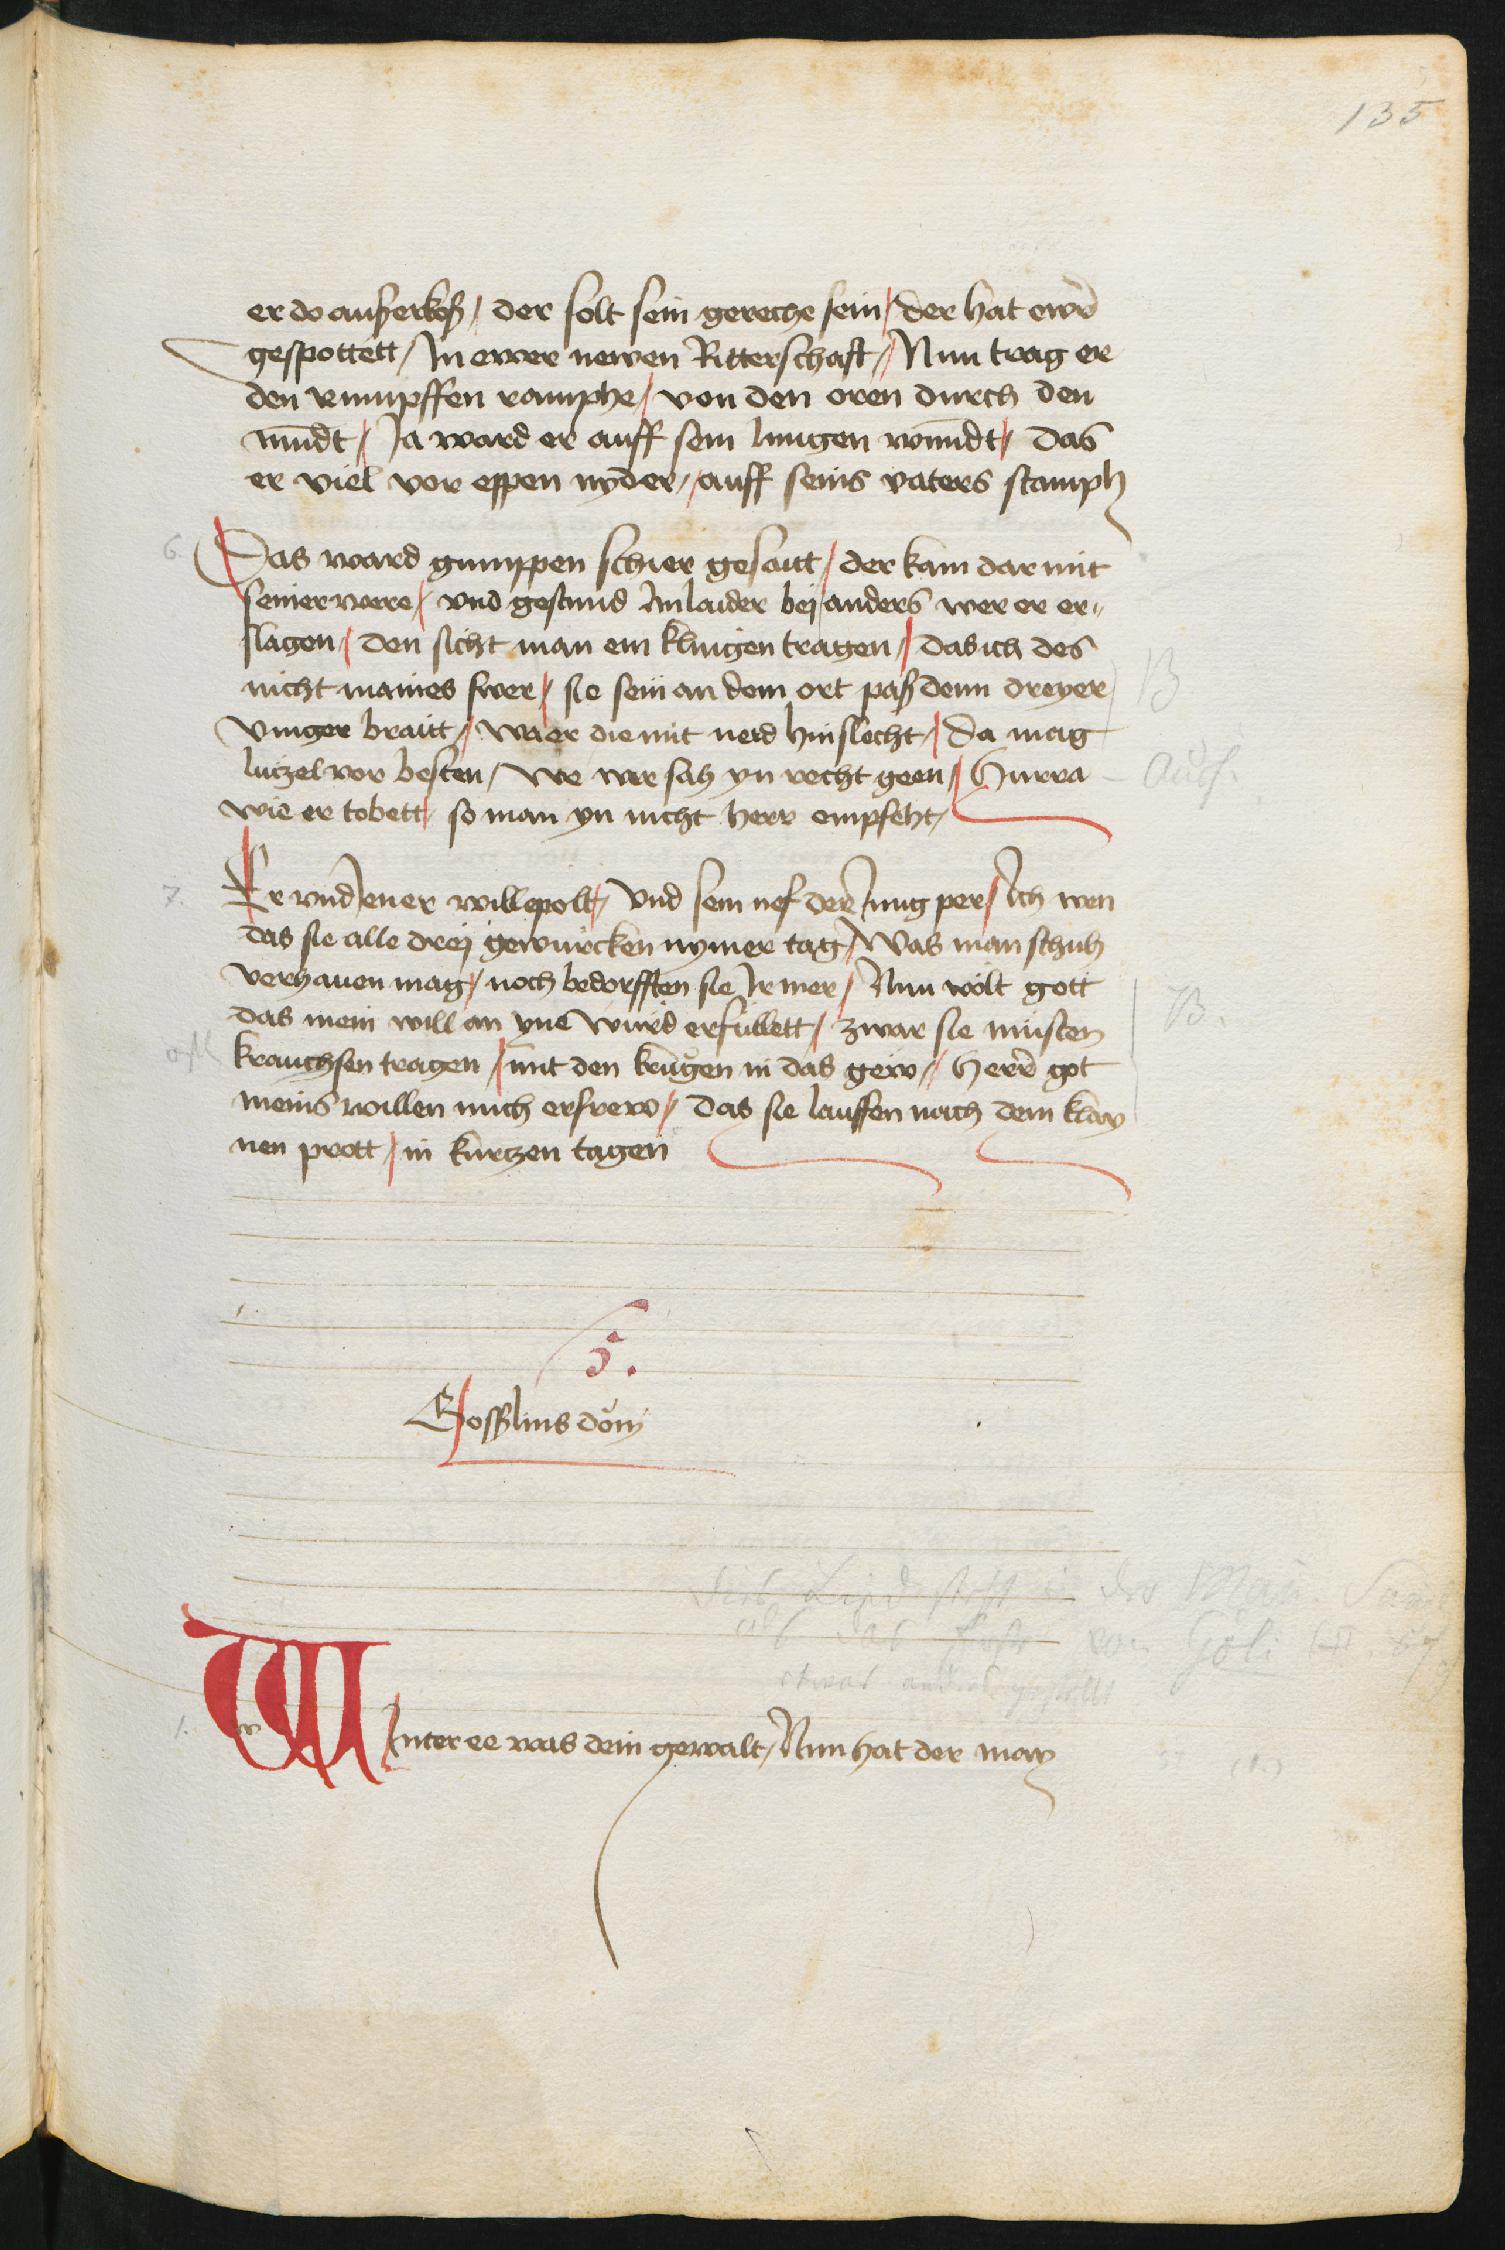 135
er do außerkoß / der solt sein gereche sein / der hat ewr
gespottett / In ewer newen Ritterschaft // Nun trag er
den rumpffen ramphe / von den oren durch den
mundt / Ja ward er auff sein lungen wundt / das
er viel vor eppen nyder // auff seins vaters stamph
6. Das ward gumppen schier gesaitt / der kam dar mit
seiner were / vnd gestund Im laider bej anders wer er er„
slagen / den sicht man ein klingen tragen / das ich des
nicht maines swer / sie seii an dem ort paß denn dreyer
vinger braitt / wa er die mit neid hin slecht / da mag
lutzel vor besten / we wer sah yn recht geen / Hurra
wie er tobett / so man yn nicht herr empfeht /
B
Auf.
7. Er vnd Jener willepolt / vnd sein nef der Jung per / Ich wen
das sie alle drej gewurcken nymer tag / Was man schuh
verhawen mag / noch bedorfften sie Ir mer / Nun wolt gott
das mein will an yne wurd erfullett / zwar sie musten
krauchsen tragen / mit den krugen in das gew // Herr got
meins willen mich erfrew / das sie lauffen nach dem klay
nen prott / in kurtzen tagen
B.
5.
Gosslins don
Dies Lied steht in der Man. Saml
als das erste von Göli
etwas anders gestellt
1. w Inter ee was dein gewalt / Nun hat der may